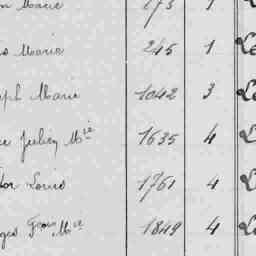 Marie 173 1
Marie 245 1 Le
ph Marie 1042 3 Le
Julien Mie 1635 4 L
tor Louis 1761 4 L
ges Fçois Mie 1849 4 Le